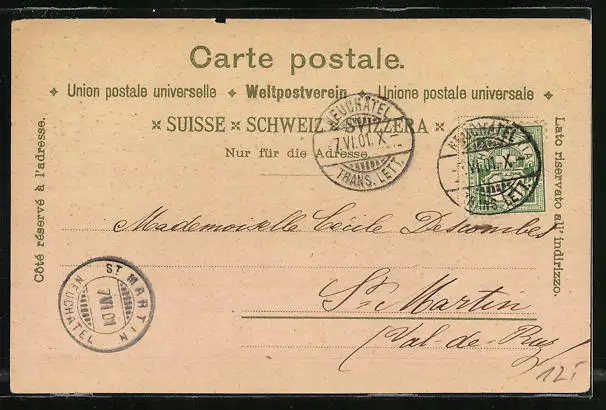 Carte postale.
Union postale universelle ✦ Weltpostverein ✦ Unione postale universale
SUISSE × SCHWEIZ × SVIZZERA
Nur für die Adresse.
Côté réservé à l'adresse.
Lato riservato all' indirizzo.
NEUCHÂTEL
7.VI.01.X
TRANS. LETT.
NEUCHÂTEL
VI.01.X
TRANS. LETT.
Mademoiselle Cécile Descombes
St. Martin
(Val-de-Ruz)
ST MARTIN
7 VI 01
NEUCHATEL